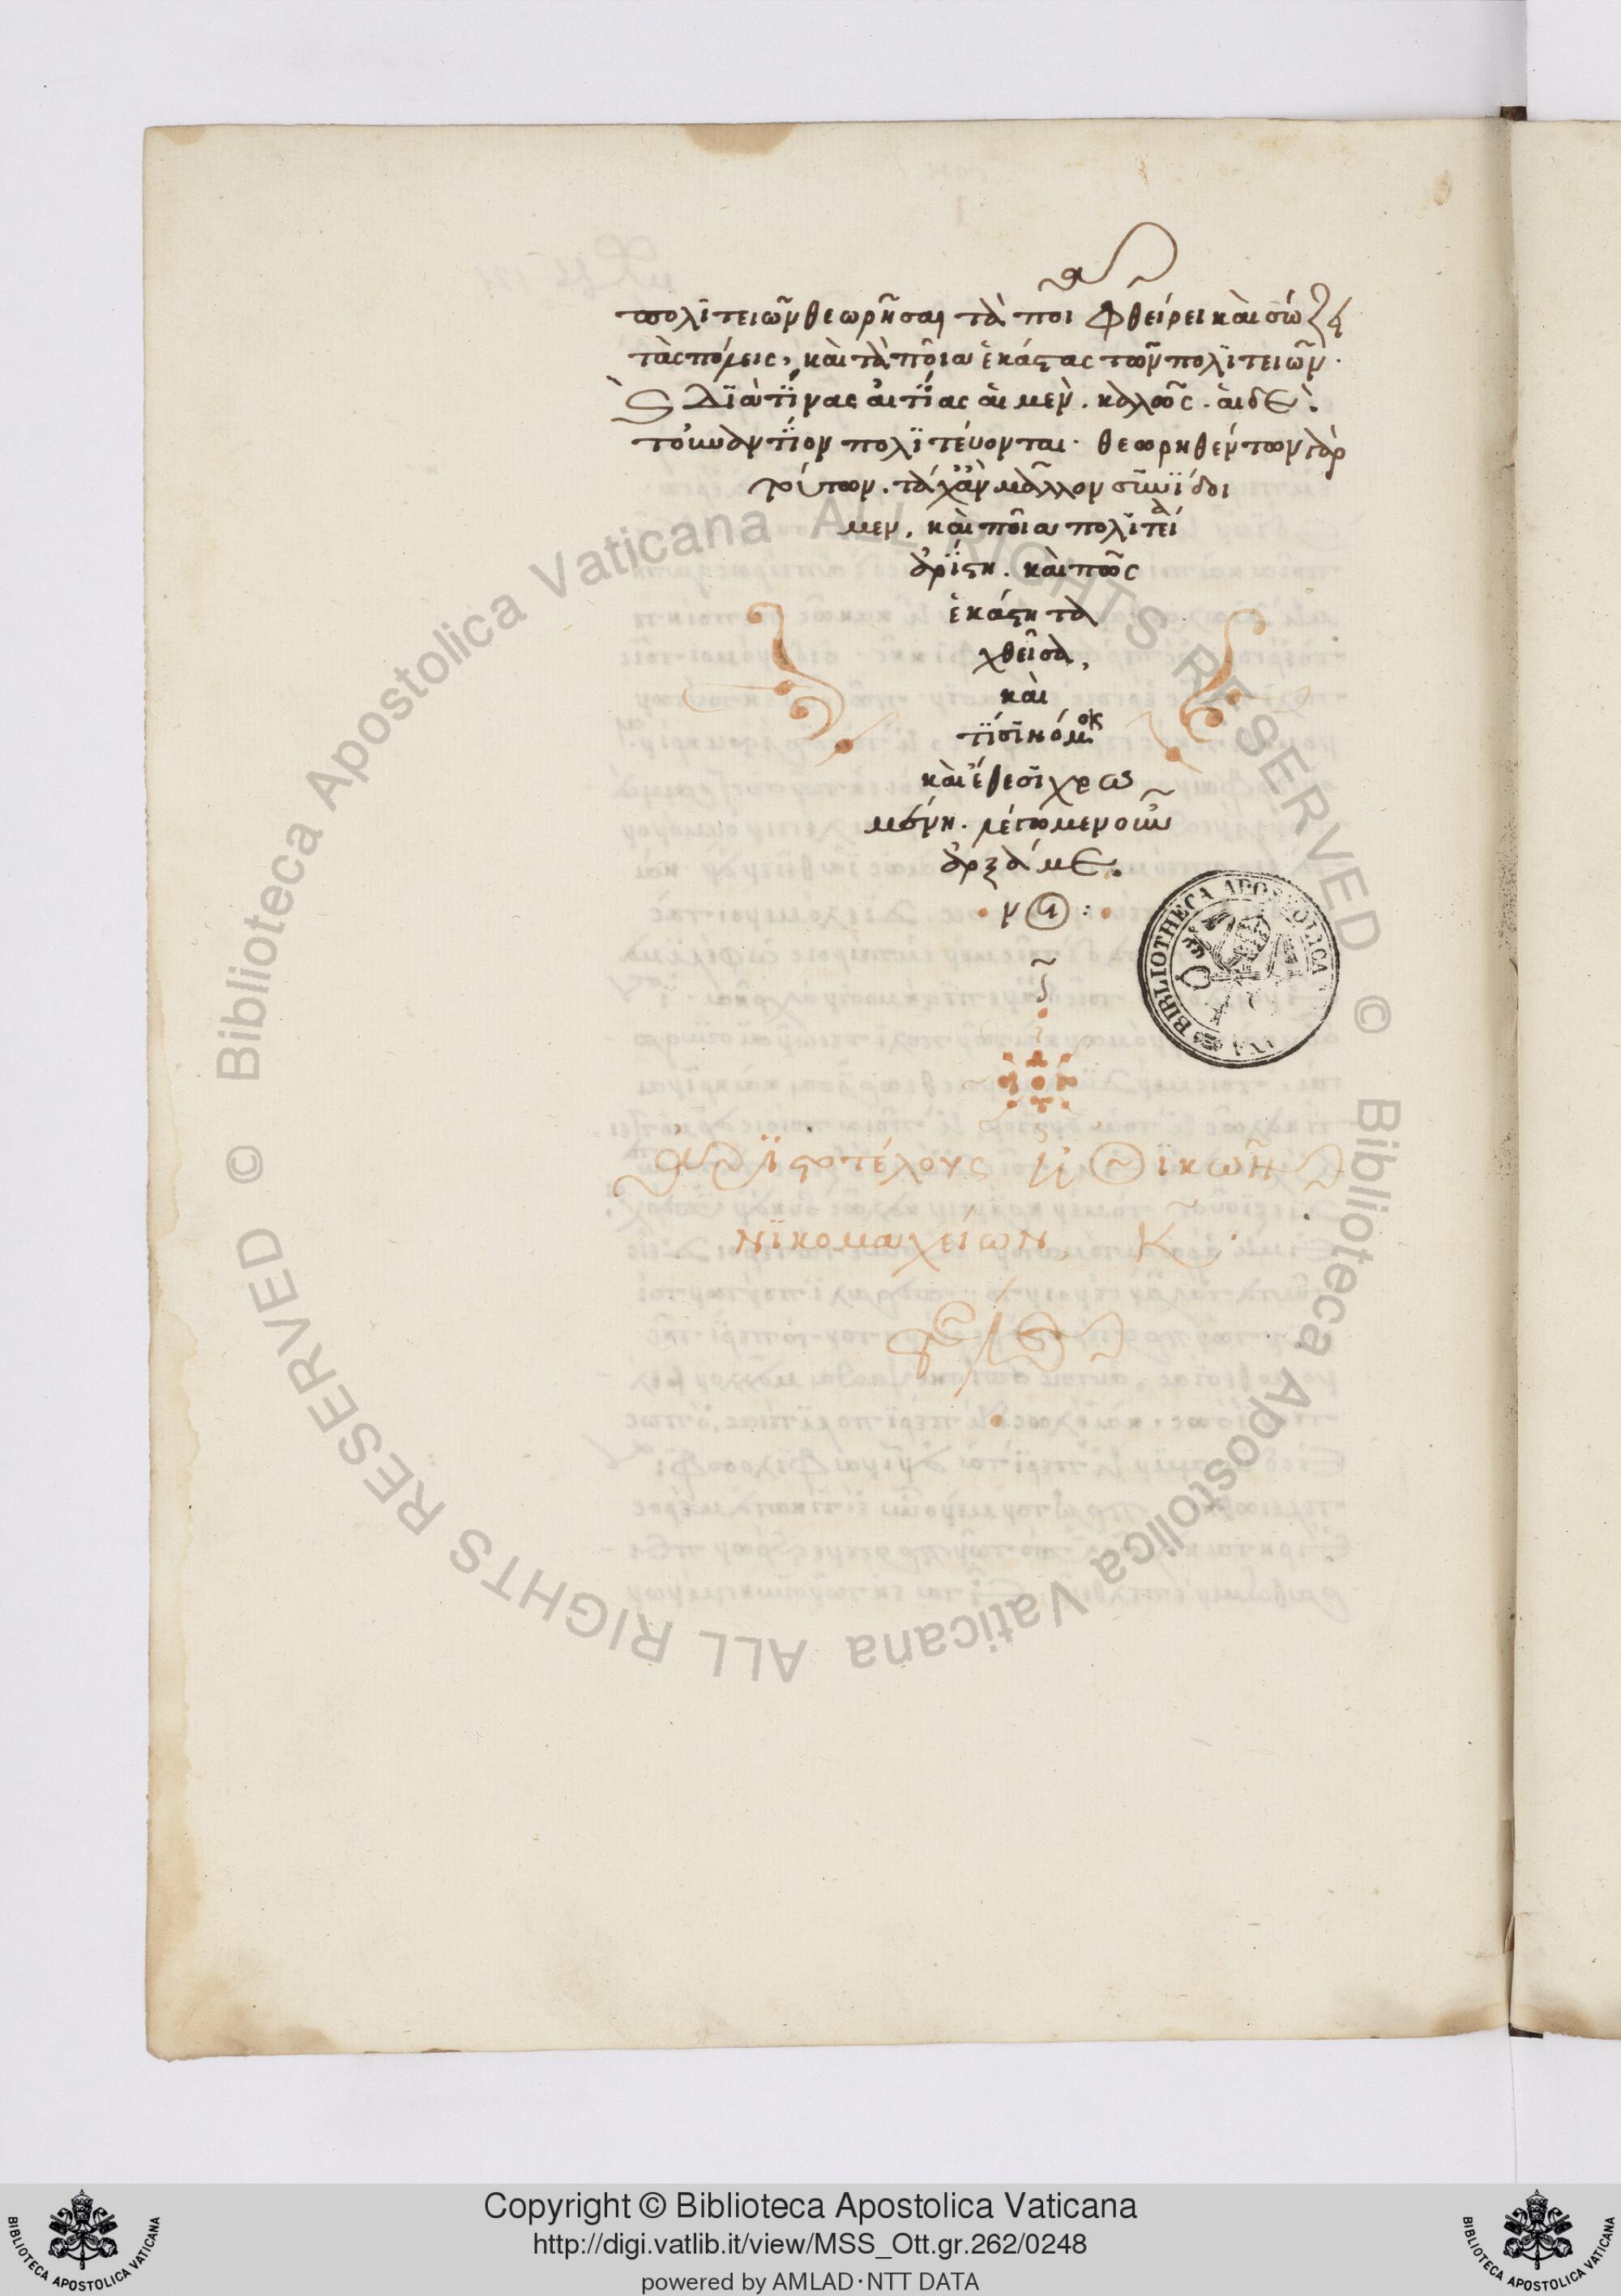 πολιτειῶν θεωρῆσαι τὰ ποῖα φθείρει καὶ σώζει
τὰς πόλεις, καὶ τὰ ποῖα ἑκάστας τῶν πολιτειῶν.
καὶ διὰ τίνας αἰτίας αἱ μὲν. καλῶς. αἱ δὲ.
τοὐναντίον πολιτεύονται. θεωρηθέντων γὰρ
τούτων. τάχ' ἂν μᾶλλον συνίδοι
μεν. καὶ ποία πολιτεία
ἀρίστη. καὶ πῶς
ἑκάστη τα
χθεῖσα,
καὶ
τίσι νόμοις
καὶ ἔθεσι χρω
μένη. λέγωμεν οὖν
ἀρξάμε
νοι :
ἀριστοτέλους ἠθικῶν
νικομαχείων, κ
BIBLIOTHECA APOSTOLICA
© Biblioteca Apostolica Vaticana ALL RIGHTS RESERVED © Biblioteca Apostolica Vaticana ALL RIGHTS RESERVED
Copyright © Biblioteca Apostolica Vaticana
http://digi.vatlib.it/view/MSS_Ott.gr.262/0248
powered by AMLAD·NTT DATA
BIBLIOTECA APOSTOLICA VATICANA
BIBLIOTECA APOSTOLICA VATICANA